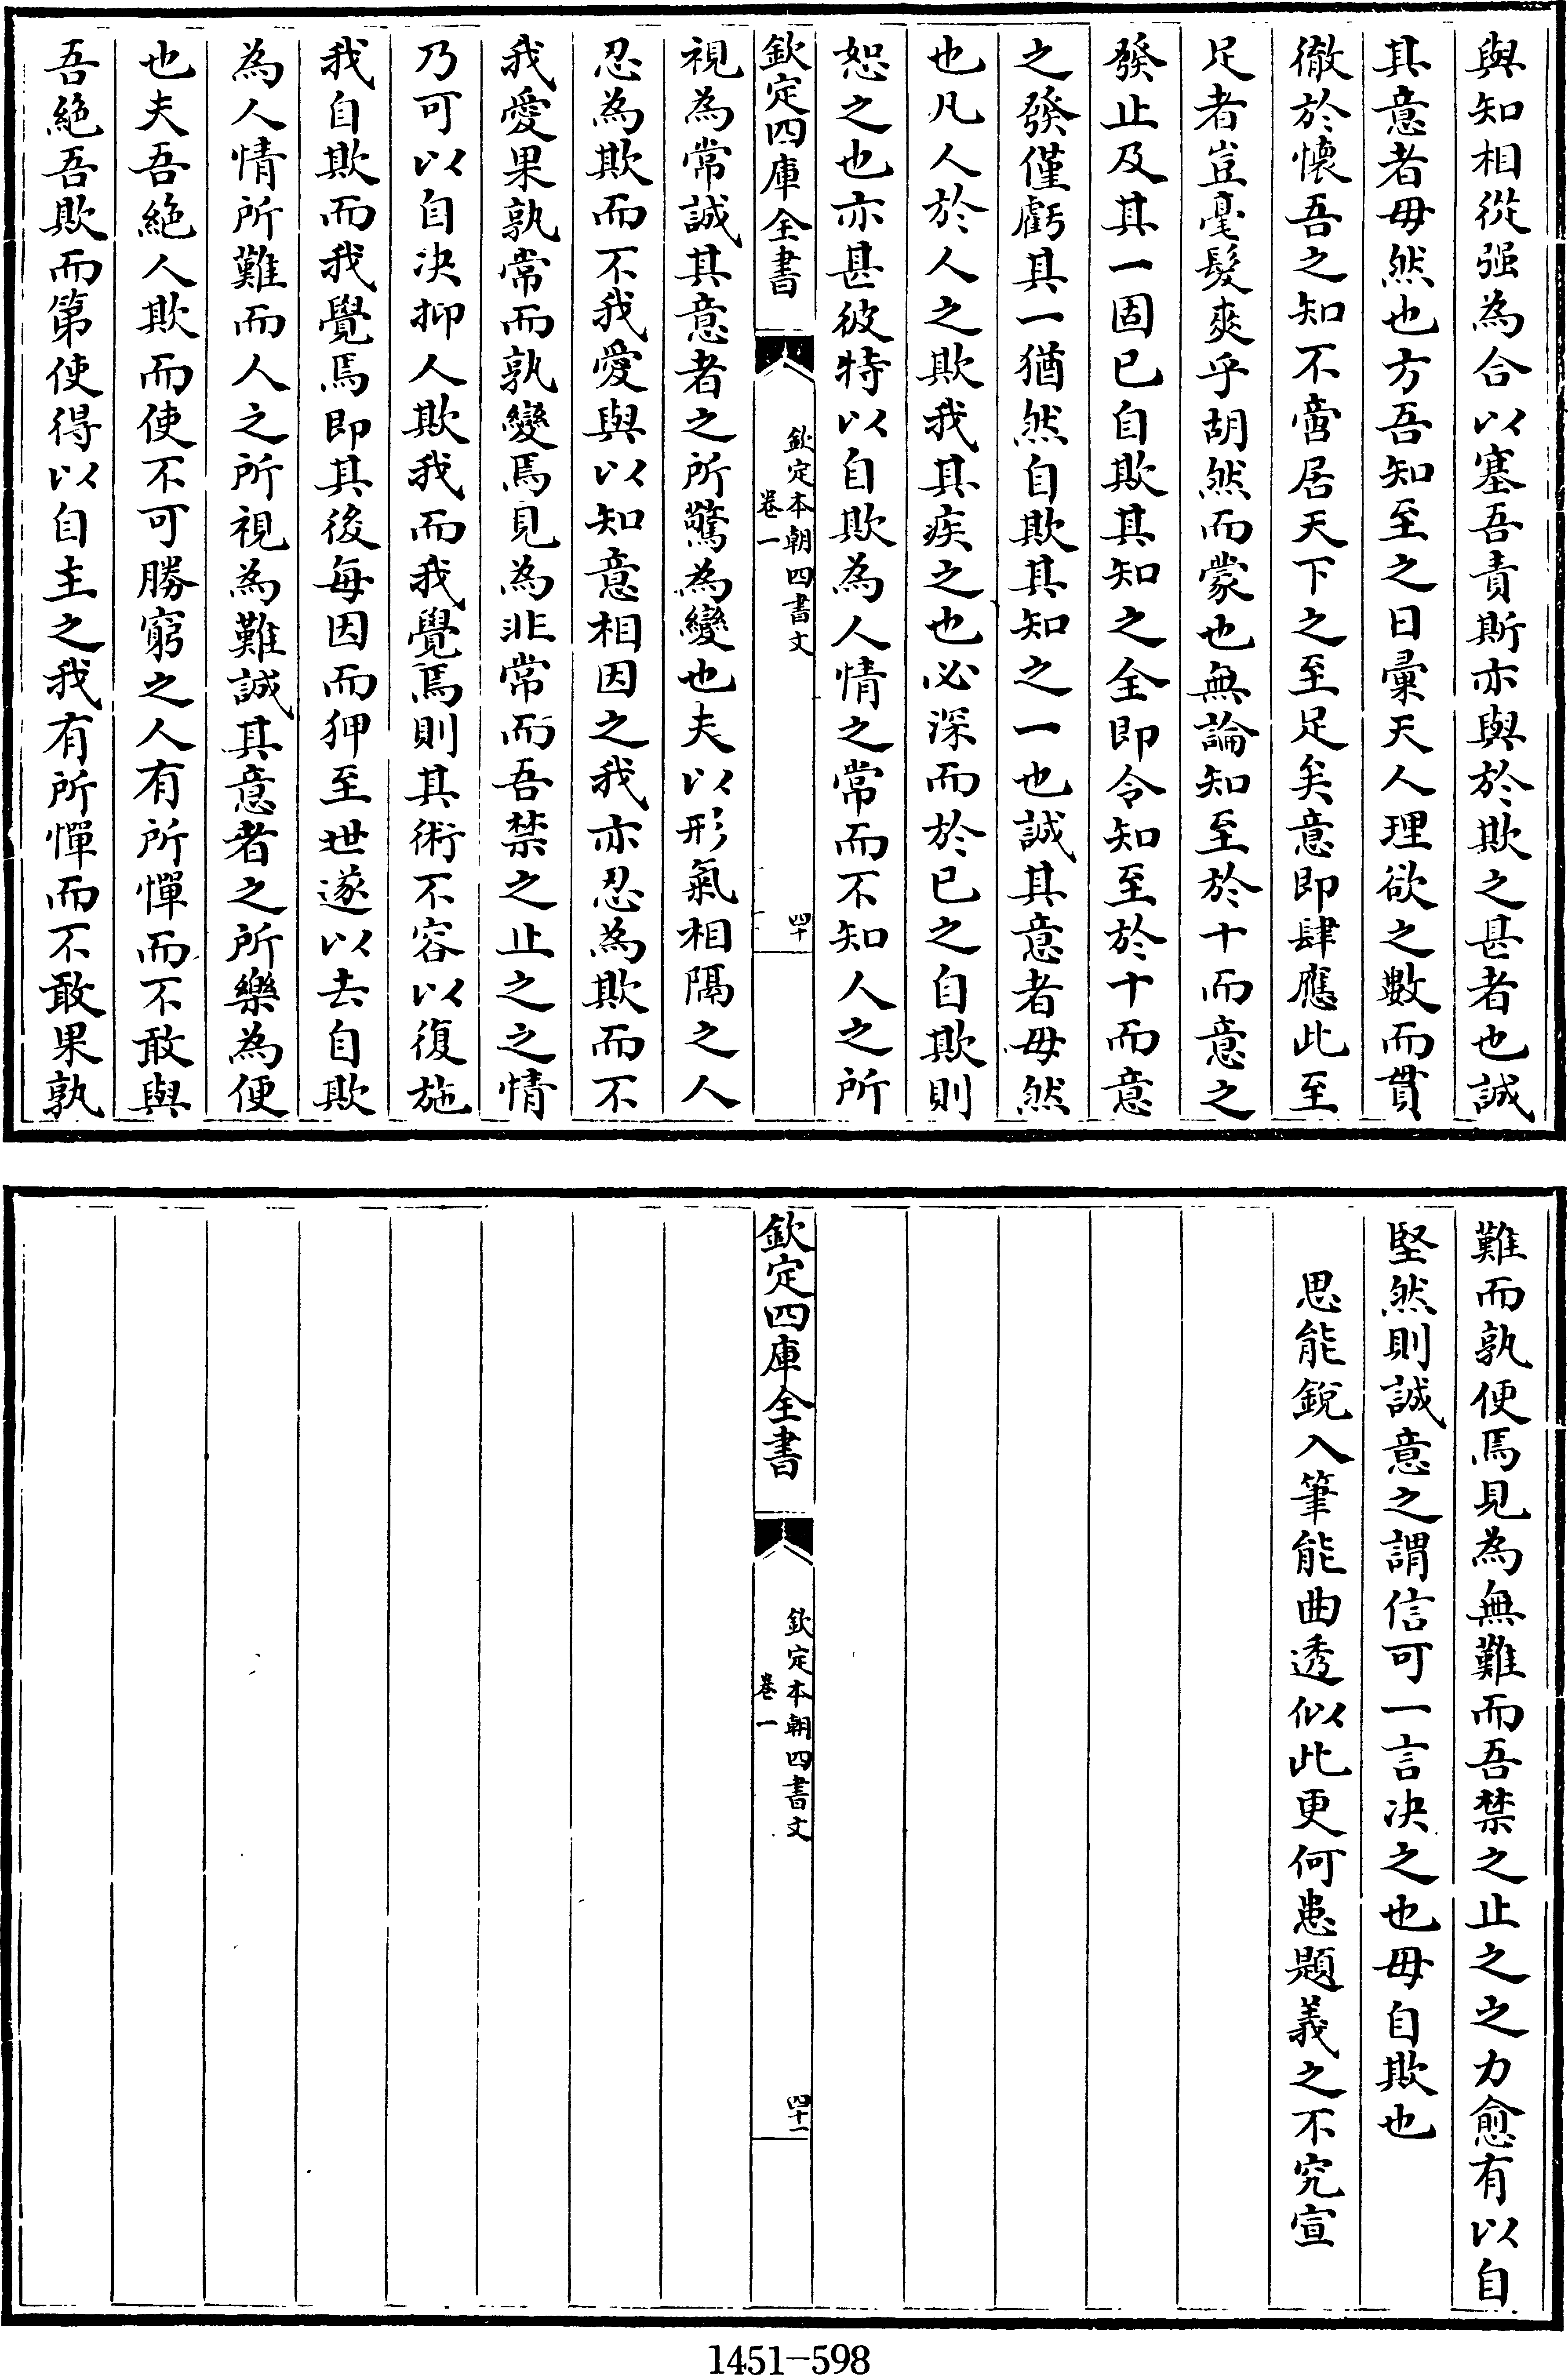 與知相從强為合以塞吾責斯亦與於欺之甚者也誠
其意者毋然也方吾知至之日彚天人理欲之數而貫
徹於懷吾之知不啻居天下之至足矣意即肆應此至
足者豈毫髮爽乎胡然而蒙也無論知至於十而意之
發止及其一固已自欺其知之全即令知至於十而意
之發僅虧其一猶然自欺其知之一也誠其意者毋然
也凡人於人之欺我其疾之也必深而於已之自欺則
恕之也亦甚彼特以自欺為人情之常而不知人之所
欽定四庫全書
欽定本朝四書文
卷一
四十
視為常誠其意者之所驚為變也夫以形氣相隔之人
忍為欺而不我愛與以知意相因之我亦忍為欺而不
我愛果孰常而孰變焉見為非常而吾禁之止之之情
乃可以自決抑人欺我而我覺焉則其術不容以復施
我自欺而我覺焉即其後每因而狎至世遂以去自欺
為人情所難而人之所視為難誠其意者之所樂為便
也夫吾絶人欺而使不可勝窮之人有所憚而不敢與
吾絶吾欺而第使得以自主之我有所憚而不敢果孰
難而孰便焉見為無難而吾禁之止之之力愈有以自
堅然則誠意之謂信可一言决之也毋自欺也
思能銳入筆能曲透似此更何患題義之不究宣
欽定四庫全書
欽定本朝四書文
卷一
四十一
1451-598